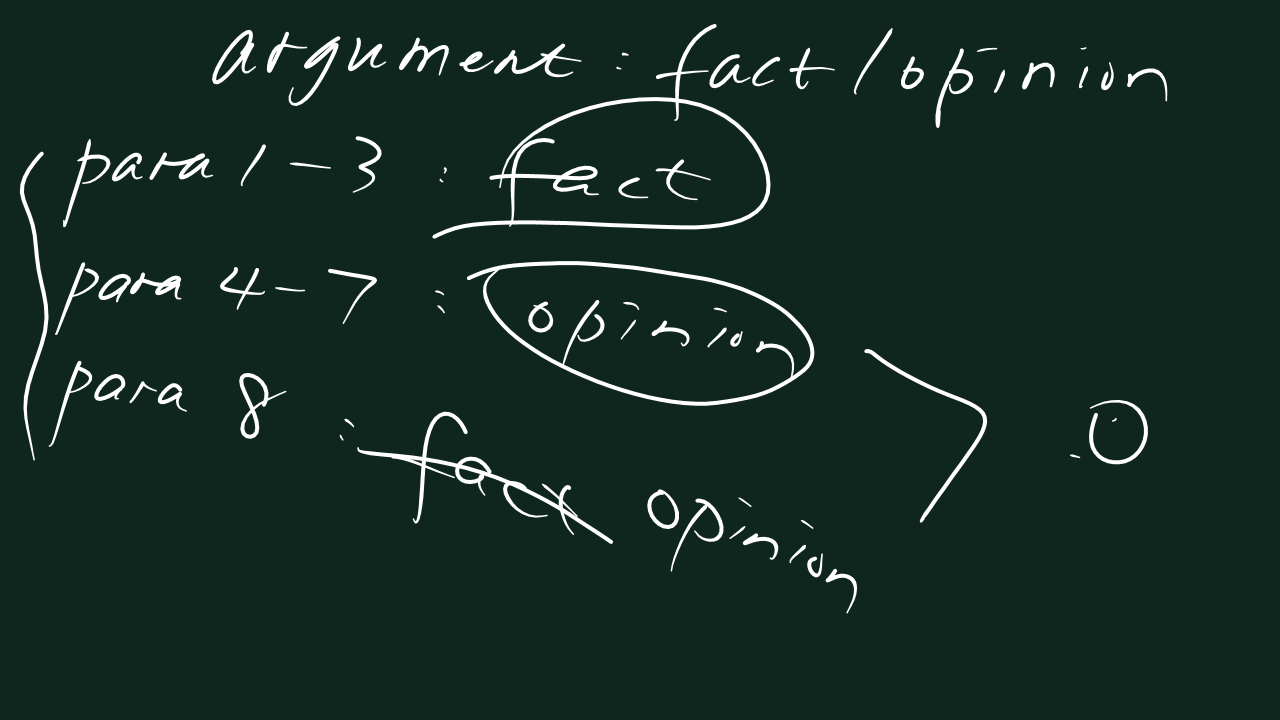 argument : fact / opinion
para 1 - 3 : fact
para 4 - 7 : opinion
para 8 : fact opinion
O